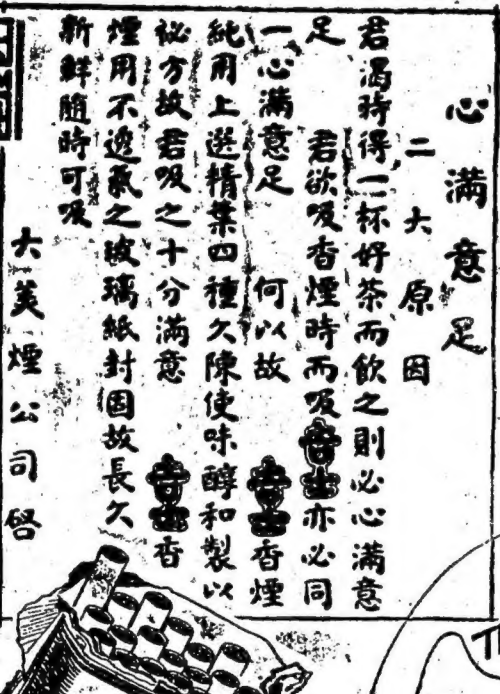 心滿意足
二大原因
君渴時得一杯好茶而飲之則必心滿意
足 君欲吸香煙時而吸 亦必同
一心滿意足 何以故 香煙
純用上選精葉四種久陳使味醇和製以
祕方故君吸之十分滿意 香
煙用不透氣之玻璃紙封固故長久
新鮮隨時可吸
大美煙公司啓